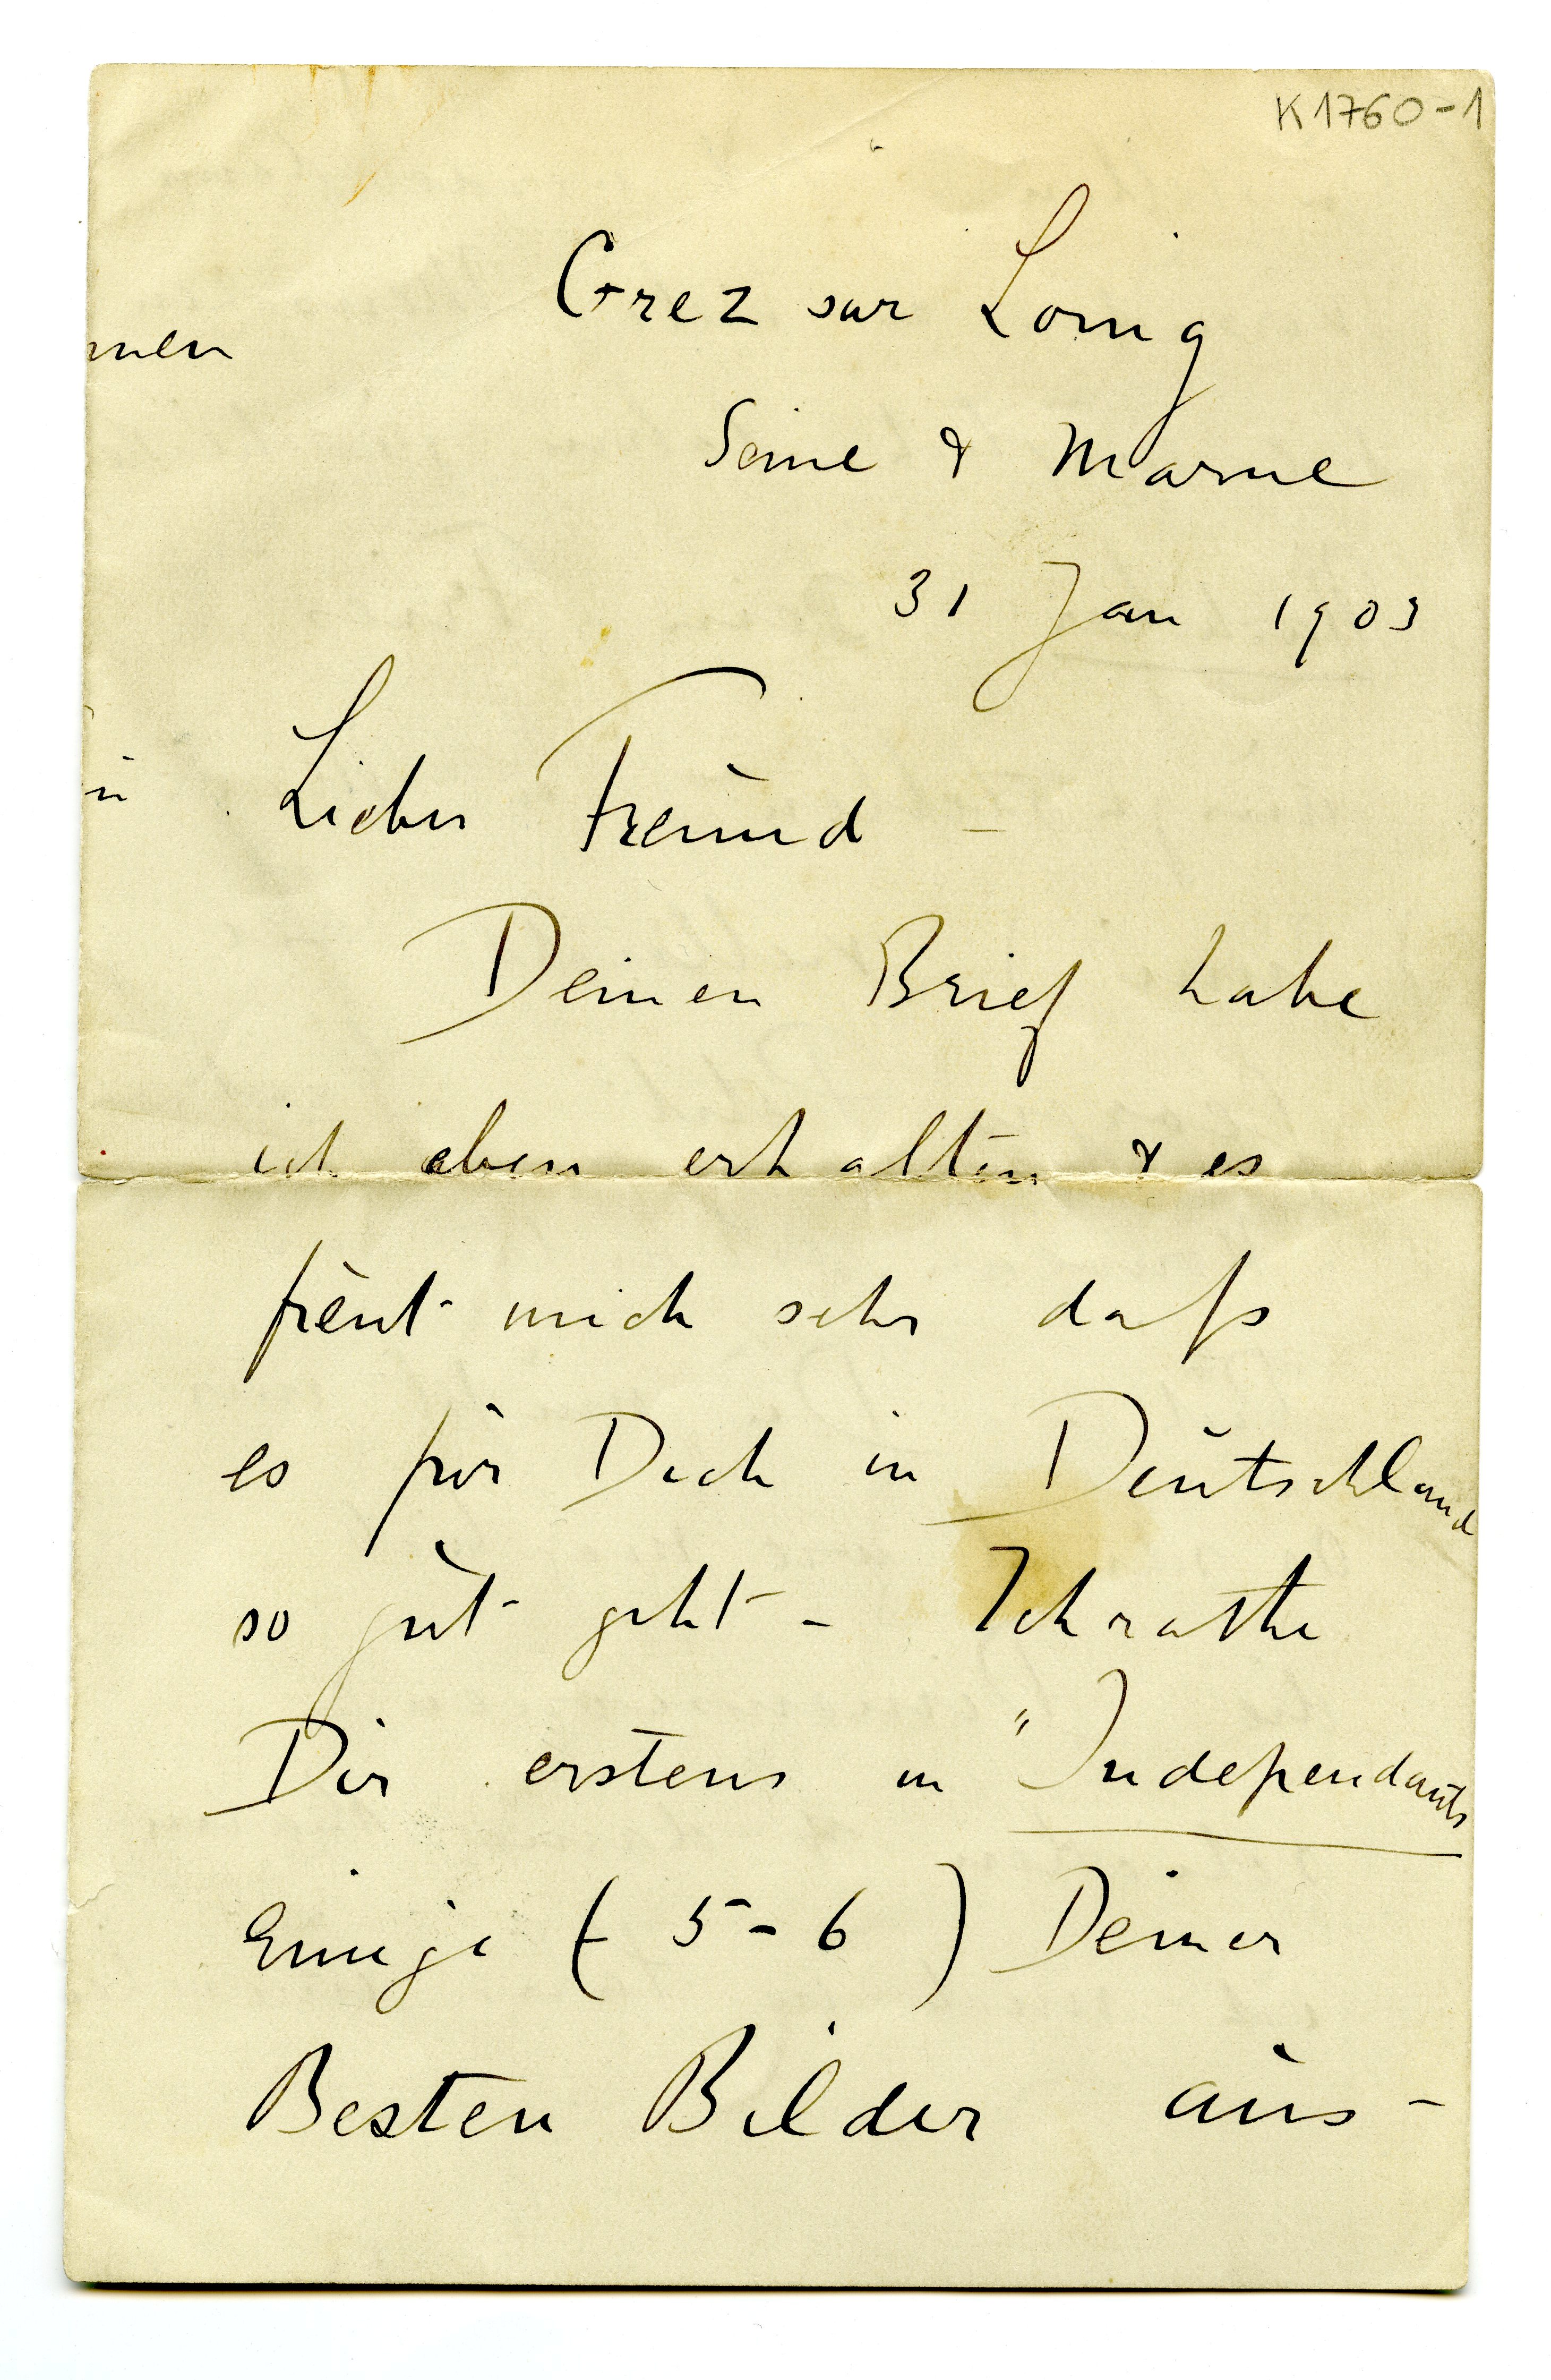 K1760-1
Grez sur Loing
Seine & Marne
31 Jan 1903
Lieber Freund –
Deinen Brief habe
ich eben erhalten & es
freut mich sehr daſs
es für Dich in Deutschland
so gut geht – Ich rathe
Dir erstens in "Independants
Einige (5-6) Deiner
Besten Bilder aus-